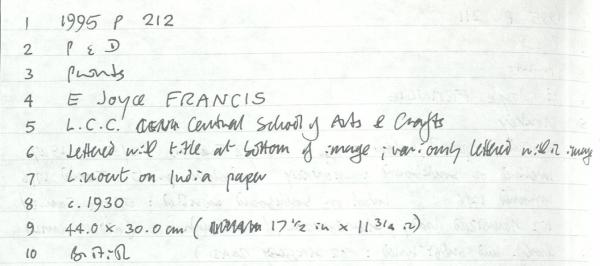 1 1995 P 212
2 P & D
3 Prints
4 E Joyce FRANCIS
5 L.C.C. Central School of Arts & Crafts
6 Lettered with title at bottom of image ; variously lettered within image
7 Linocut on India paper
8 c. 1930
9 44.0 x 30.0 cm ( 17 1/2 in x 11 3/4 in)
10 British